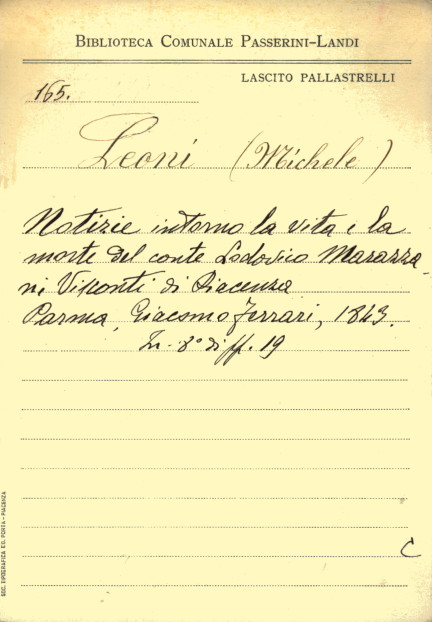 BIBLIOTECA COMUNALE PASSERINI-LANDI
LASCITO PALLASTRELLI
165.
Leoni (Michele)
Notizie intorno la vita e la
morte del conte Lodovico Marazza-
ni Visconti di Piacenza
Parma, Giacomo Ferrari, 1843.
In-8° di ff. 19
C
SOC. TIPOGRAFICA ED. PORTA - PIACENZA